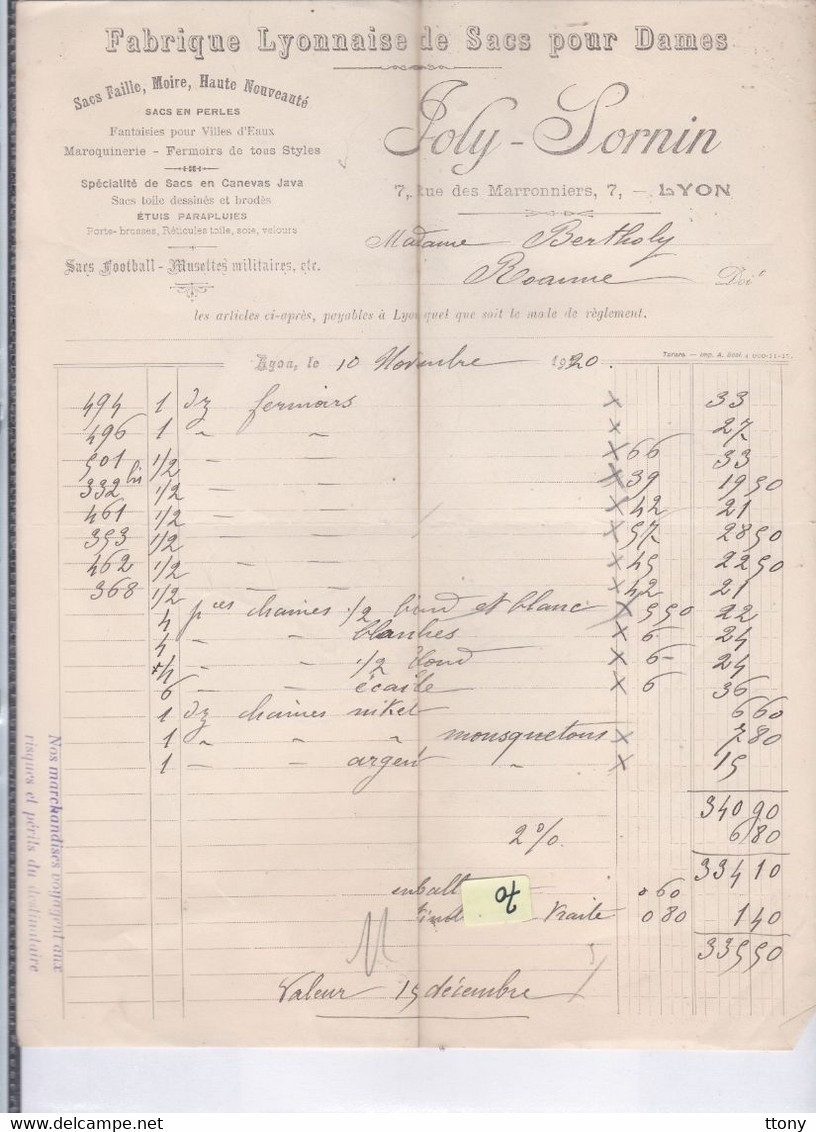 Fabrique Lyonnaise de Sacs pour Dames
Sacs Faille, Moire, Haute Nouveauté
SACS EN PERLES
Fantaisies pour Villes d'Eaux
Maroquinerie - Fermoirs de tous Styles
Spécialité de Sacs en Canevas Java
Sacs toile dessinés et brodés
ÉTUIS PARAPLUIES
Porte-brosses, Réticules toile, soie, velours
Sacs Football - Musettes militaires, etc.
Joly-Sornin
7, Rue des Marronniers, 7, - LYON
Madame Bertholy
Roanne Doit
les articles ci-après, payables à Lyon quel que soit le mode de règlement.
Lyon, le 10 Novembre 1920.
494 1 dz fermoirs x 33
496 1 " " x 27
501 1/2 - - x 66 33
332 bis 1/2 - - x 39 19 50
461 1/2 - - x 42 21
353 1/2 - - x 57 28 50
462 1/2 - - x 45 22 50
368 1/2 - - x 42 21
4 pces chaines 1/2 blond et blanc x 5 50 22
4 - " blanches x 6 - 24
4 - " 1/2 blond x 6 - 24
6 - - écaille x 6 36
1 dz chaines nikel 6 60
1 " " " mousquetons x 7 80
1 - argent " x 15
340 90
2 % 6 80
334 10
emball 0 60
Traite 0 80 1 40
335 50
70
Valeur 15 décembre
Nos marchandises voyagent aux
risques et périls du destinataire
ttony